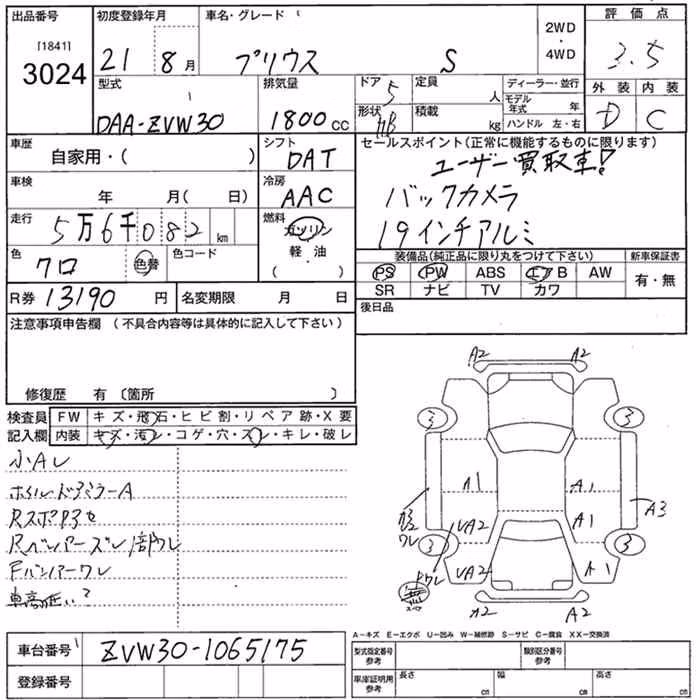 出品番号 初度登録年月 車名・グレード 2WD・4WD 評価点
[1841]
3024
21 8月 プリウス S 3.5
型式 排気量 ドア 5 定員 人 ディーラー・並行 外装 内装
モデル年式 年
DAA-ZVW30 1800 CC 形状 HB 積載 kg ハンドル 左・右 D C
車歴 シフト セールスポイント(正常に機能するものに限ります)
自家用・( ) DAT ユーザー買取車!
車検 冷房 バックカメラ
年 月( 日) AAC 19インチアルミ
走行 5万6千082 km 燃料 ガソリン
軽・油
( )
色 クロ 色替 色コード
装備品(純正品に限り丸をつけて下さい) 新車保証書
PS PW ABS エアB AW 有・無
SR ナビ TV カワ
R券 13190 円 名変期限 月 日 後日品
注意事項申告欄 (不具合内容等は具体的に記入して下さい)
修復歴 有 (箇所 )
検査員 FW キズ・飛石・ヒビ割・リペア跡・X要
記入欄 内装 キズ・汚レ・コゲ・穴・スレ・キレ・破レ
小Aレ
ホイルドアミラーA
Rバンパーズレ 1部ワレ
Fバンパーワレ
車高低い?
A2 A2
3 3
A1 A1
A3
ワレ
UA2 A1
3 3
ワレ
UA2 A1
A2 A2
A-キズ E-エクボ U-凹み W-補修跡 S-サビ C-腐食 XX-交換済
車台番号 ZVW30-1065175
型式指定番号 参考 類別区分番号 参考
登録番号
車庫証明用 参考 長さ cm 幅 cm 高さ cm